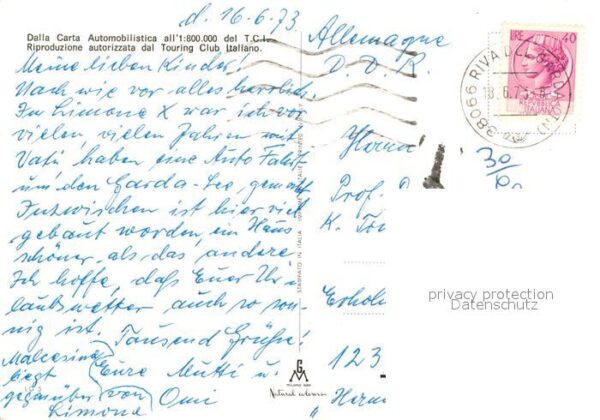 d. 16.6.73
Dalla Carta Automobilistica all'1:800.000 del T.C.I.
Riproduzione autorizzata dal Touring Club Italiano.
Meine lieben Kinder!
Nach wie vor alles herrlich.
In Limone X war ich vor
vielen, vielen Jahren mit
Vati, haben eine Auto Fahrt
um den Garda-See, gemacht
Inzwischen ist hier viel
gebaut worden, ein Haus
schöner als das andere.
Ich hoffe, daß Euer Ur-
laubswetter auch so son-
nig ist. Tausend Grüße!
Eure Mutti u.
Omi
Malcesine
liegt
gegenüber von
Limone
Allemagne
D. D. R.
Prof.
K.
Erhol
123
"Herm
LIRE 40
38066 RIVA DEL GARDA (TN)
18.6.73
30
privacy protection
Datenschutz
STAMPATO IN ITALIA
GM
MILANO
Natural colour